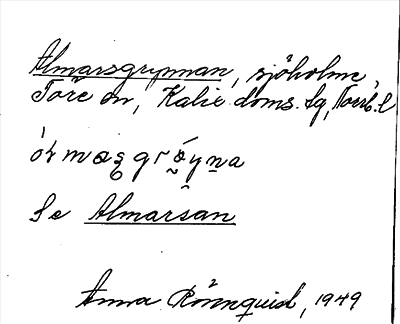 Almarsgrynnan, sjöholme,
Töre sn, Kalix doms. sg, Norrb. l
Se Almarsan
Anna Rönnquist, 1949